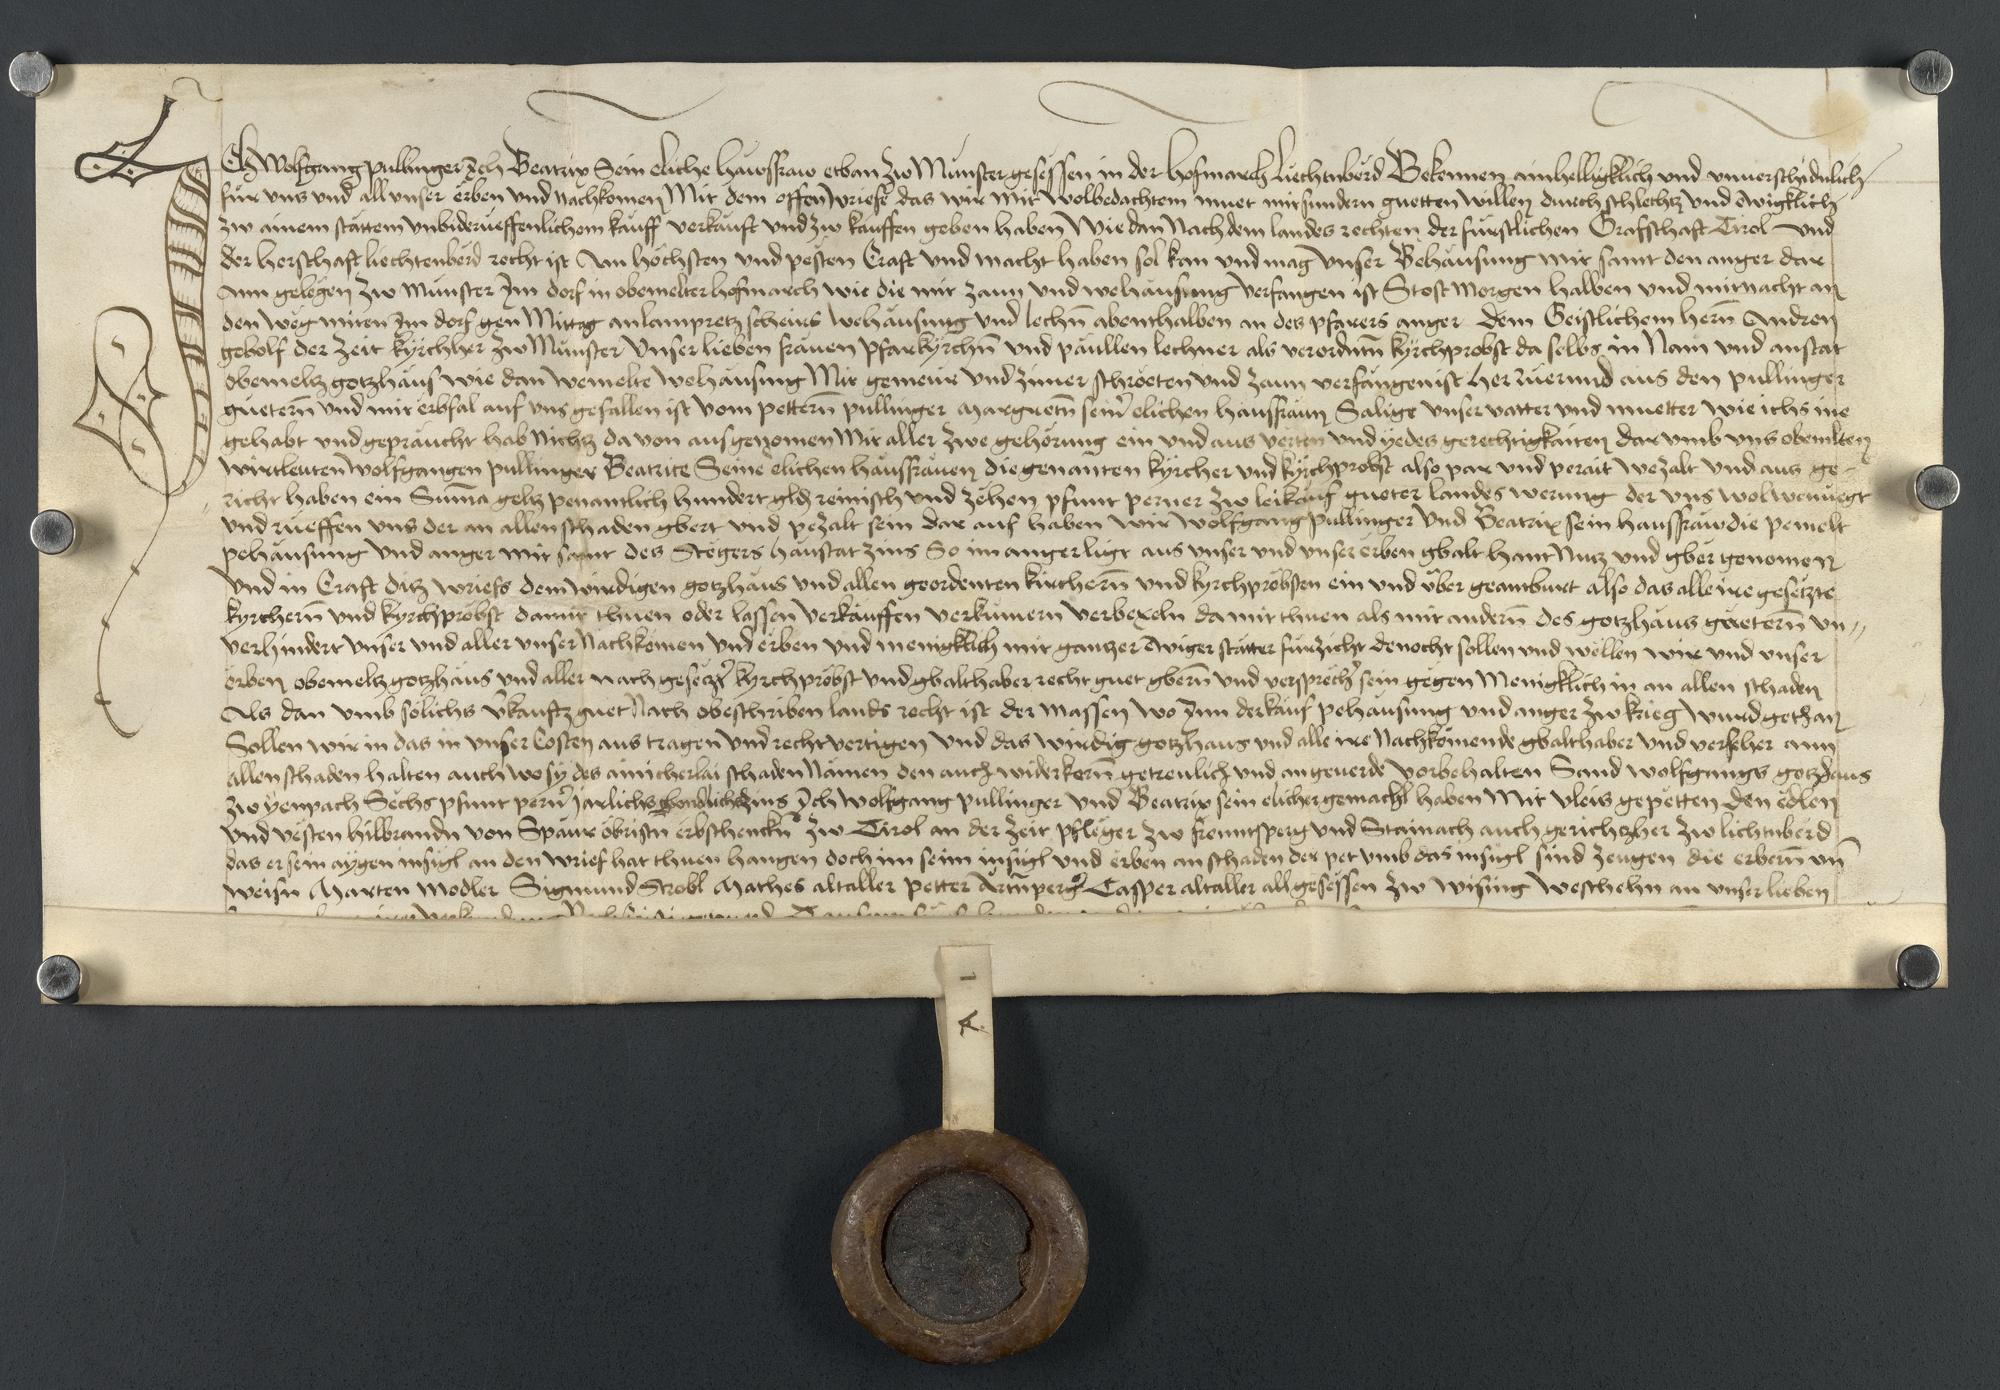 Ich Wolfgang pullinger Ich Beatrix Sein eliche hawsfraw etban zw Munster gesessen in der hofmarch Liechtnberd Bekennen ainhelligklich und unverschidnlich
für uns und all unser erben und nachkomen Mit dem offen wriefe das wir mit wolbedachtem muet mit sundern guetten willen durch schlechtz und ewigklich
zw ainem stättem unbiderueffenlichem kauff verkauft und zw kauffen geben haben Wie dan Nach dem landes rechten der fürstlichen Grafschaft Tirol und
der herschaft liechtenberd recht ist Am höchsten und pesten Craft und macht haben sol kan und mag Unser Behausung mit samt den anger dar
ann gelegen zw munster Im dorf in obemelter hofmarch wie die mit zaun und wehausung verfangen ist Stost Morgen halben und mitnacht an
den weg miten Im dorf gen Mittag an lampretz scheirs wehausung und lechn abenthalben an des pfarers anger dem Geistlichem hern Andren
gebolf der zeit kyrchher zw Munster Unser lieben frauen pfarkyrchn und paullen lechner als verordntn kyrchprobst da selbs in Nam und anstat
obemeltz gotzhaus wie dan wemelte wehausung Mit gemeur und zimer schroeten und zaun verfangen ist her ruerund aus den pullinger
guetern und mit erbfal auf uns gefallen ist vom pettern pullinger Margretn seiner elichen hausfraun Salige unser vatter und muetter wie ichs ine
gehabt und gepraucht hab Nichtz da von ausgenomen Mit aller zwe gehörung ein und aus verten und yedes gerechtigkaiten dar umb uns obemlten
wirtleuten Wolfgangen pullinger Beatrice Seine elichen hausfrauen die genanten kyrcher und kyrchprobst also par und perait wezalt und aus ge-
richt haben ein Suma geltz penantlich hundert gld reinisch und zehen pfunt perner zw leikauf gueter landes werung der uns wol wenuegt
und rueffen uns der an allen schaden gbert und pezalt sein dar auf haben wir Wolfgang pullinger und Beatrix sein hausfraw die pemelt
pehausung und anger mit samt des Stegers haustat zins So im anger ligt aus unser und unser erben gbalt hant Nutz und gber genomen
und in Craft ditz wriefs dem wirdigen gotzhaus und allen geordenten kirchern und kyrchpröbsten ein und über geantburt also das alle ire gesetzte
kyrchern und kyrchpröbst damit thuen oder lassen verkauffen verkumern verbexeln da mit thuen als mit andern des gotzhaus guetern un-
verhindert unser und aller unser Nachkomen und erben und menigklich mit gantzer ewiger statter fürzicht denocht sollen und wellen wir und unser
erben obemeltz gotzhaus und aller nach gesetzer kyrchpröbst und gbalthaber recht guet gbern und versprecher sein gegen Menigklich in an allen schaden
Als dan umb solichs verkauftz guet Nach obeschriben lands recht ist der massen wo Inn der kauf pehausung und anger zw krieg wurd gethan
Sollen wir in das in unser Costen aus tragen und recht vertigen und das wirdig gotzhaus und alle ire Nachkomende gbalthaber und verseher ann
allen schaden halten auch wo sy des ainicherlai schaden Namen den auch widerkern getreulich und angeuerde vorbehalten Sand wolfgangs gotzhaus
zw yenpach Sechs pfunt perner jarlichs zins Ich Wolfgang pullinger und Beatrix sein elicher gemachl haben Mit vleis gepetten den edlen
und vesten hilbrandn von Spaur öbristn erbschenckn zw Tirol an der zeit pfleger zw freuntsperg und Stainach auch gerichtzher zw lichtnberd
das er sein aygen insigl an den wrief hat thuen hangen doch im seim insigl und erben an schaden der pet umb das insigl sind zeugen die erbern un
weisn Marten Modler Sigmund Strobl Mathes altaller petter Casper altaller all gesessen zw wising Weschehn an unser lieben
1 A.